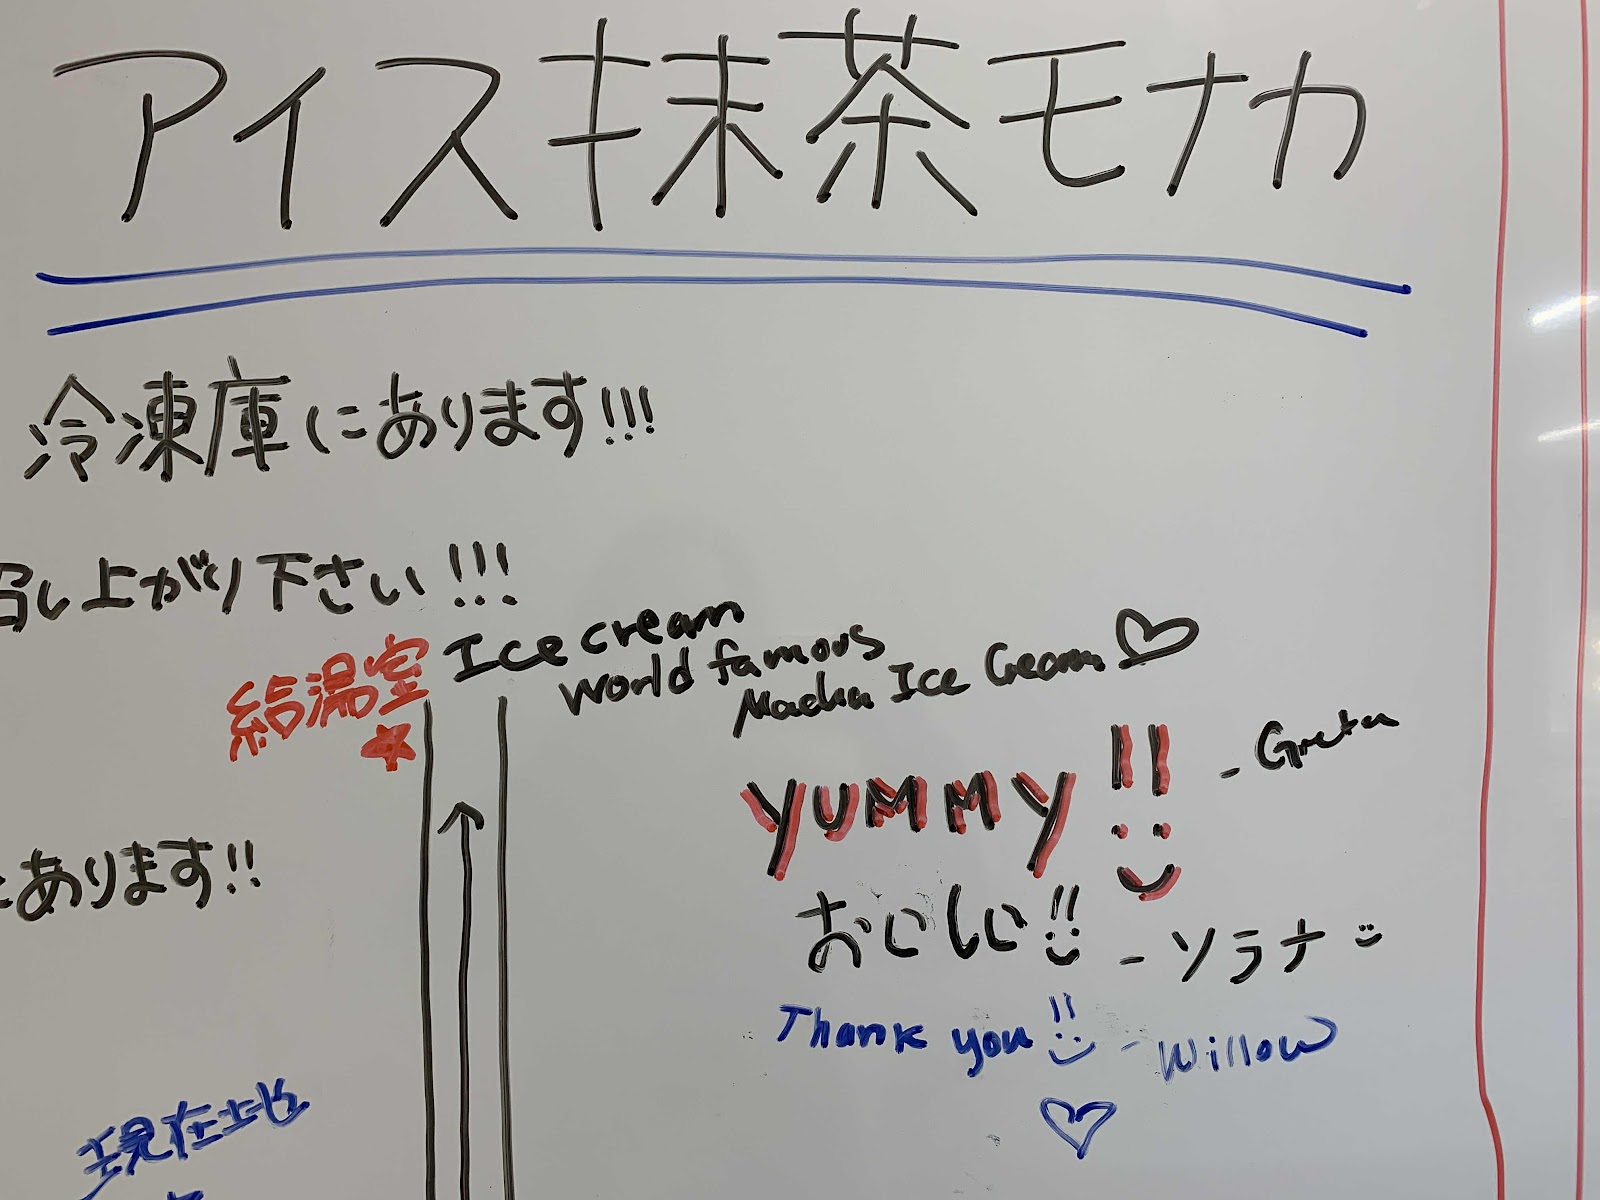 アイス抹茶モナカ
冷凍庫にあります!!!
召し上がり下さい!!!
給湯室
Ice cream
World famous
Macha Ice Cream
YUMMY!!
- Greta
おいしい!!
- ソラナ
Thank you!!
- Willow
にあります!!
現在地